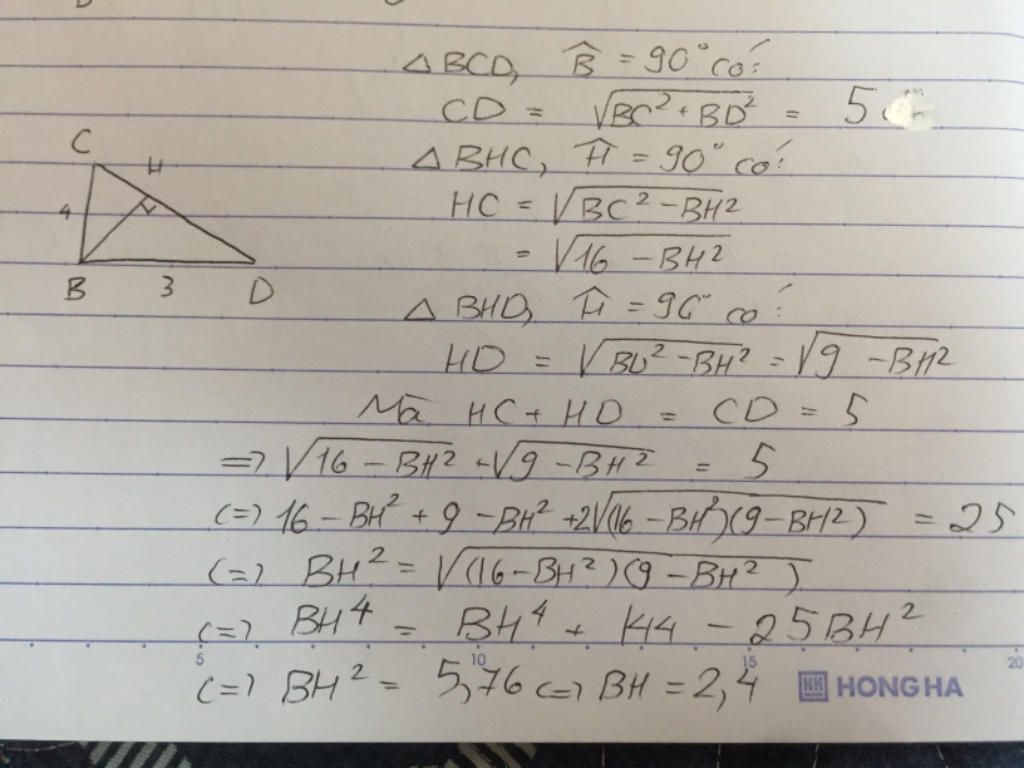 △BCD, B̂ = 90° có:
CD = √(BC² + BD²) = 5
△BHC, Ĥ = 90° có:
HC = √(BC² - BH²)
= √(16 - BH²)
△BHD, Ĥ = 90° có:
HD = √(BD² - BH²) = √(9 - BH²)
Mà HC + HD = CD = 5
=> √(16 - BH²) + √(9 - BH²) = 5
(=) 16 - BH² + 9 - BH² + 2√((16 - BH²)(9 - BH²)) = 25
(=) BH² = √((16 - BH²)(9 - BH²))
(=) BH⁴ = BH⁴ + 144 - 25BH²
(=) BH² = 5,76 (=) BH = 2,4
C H
4
B 3 D
5 10 15 20
HH HONG HA